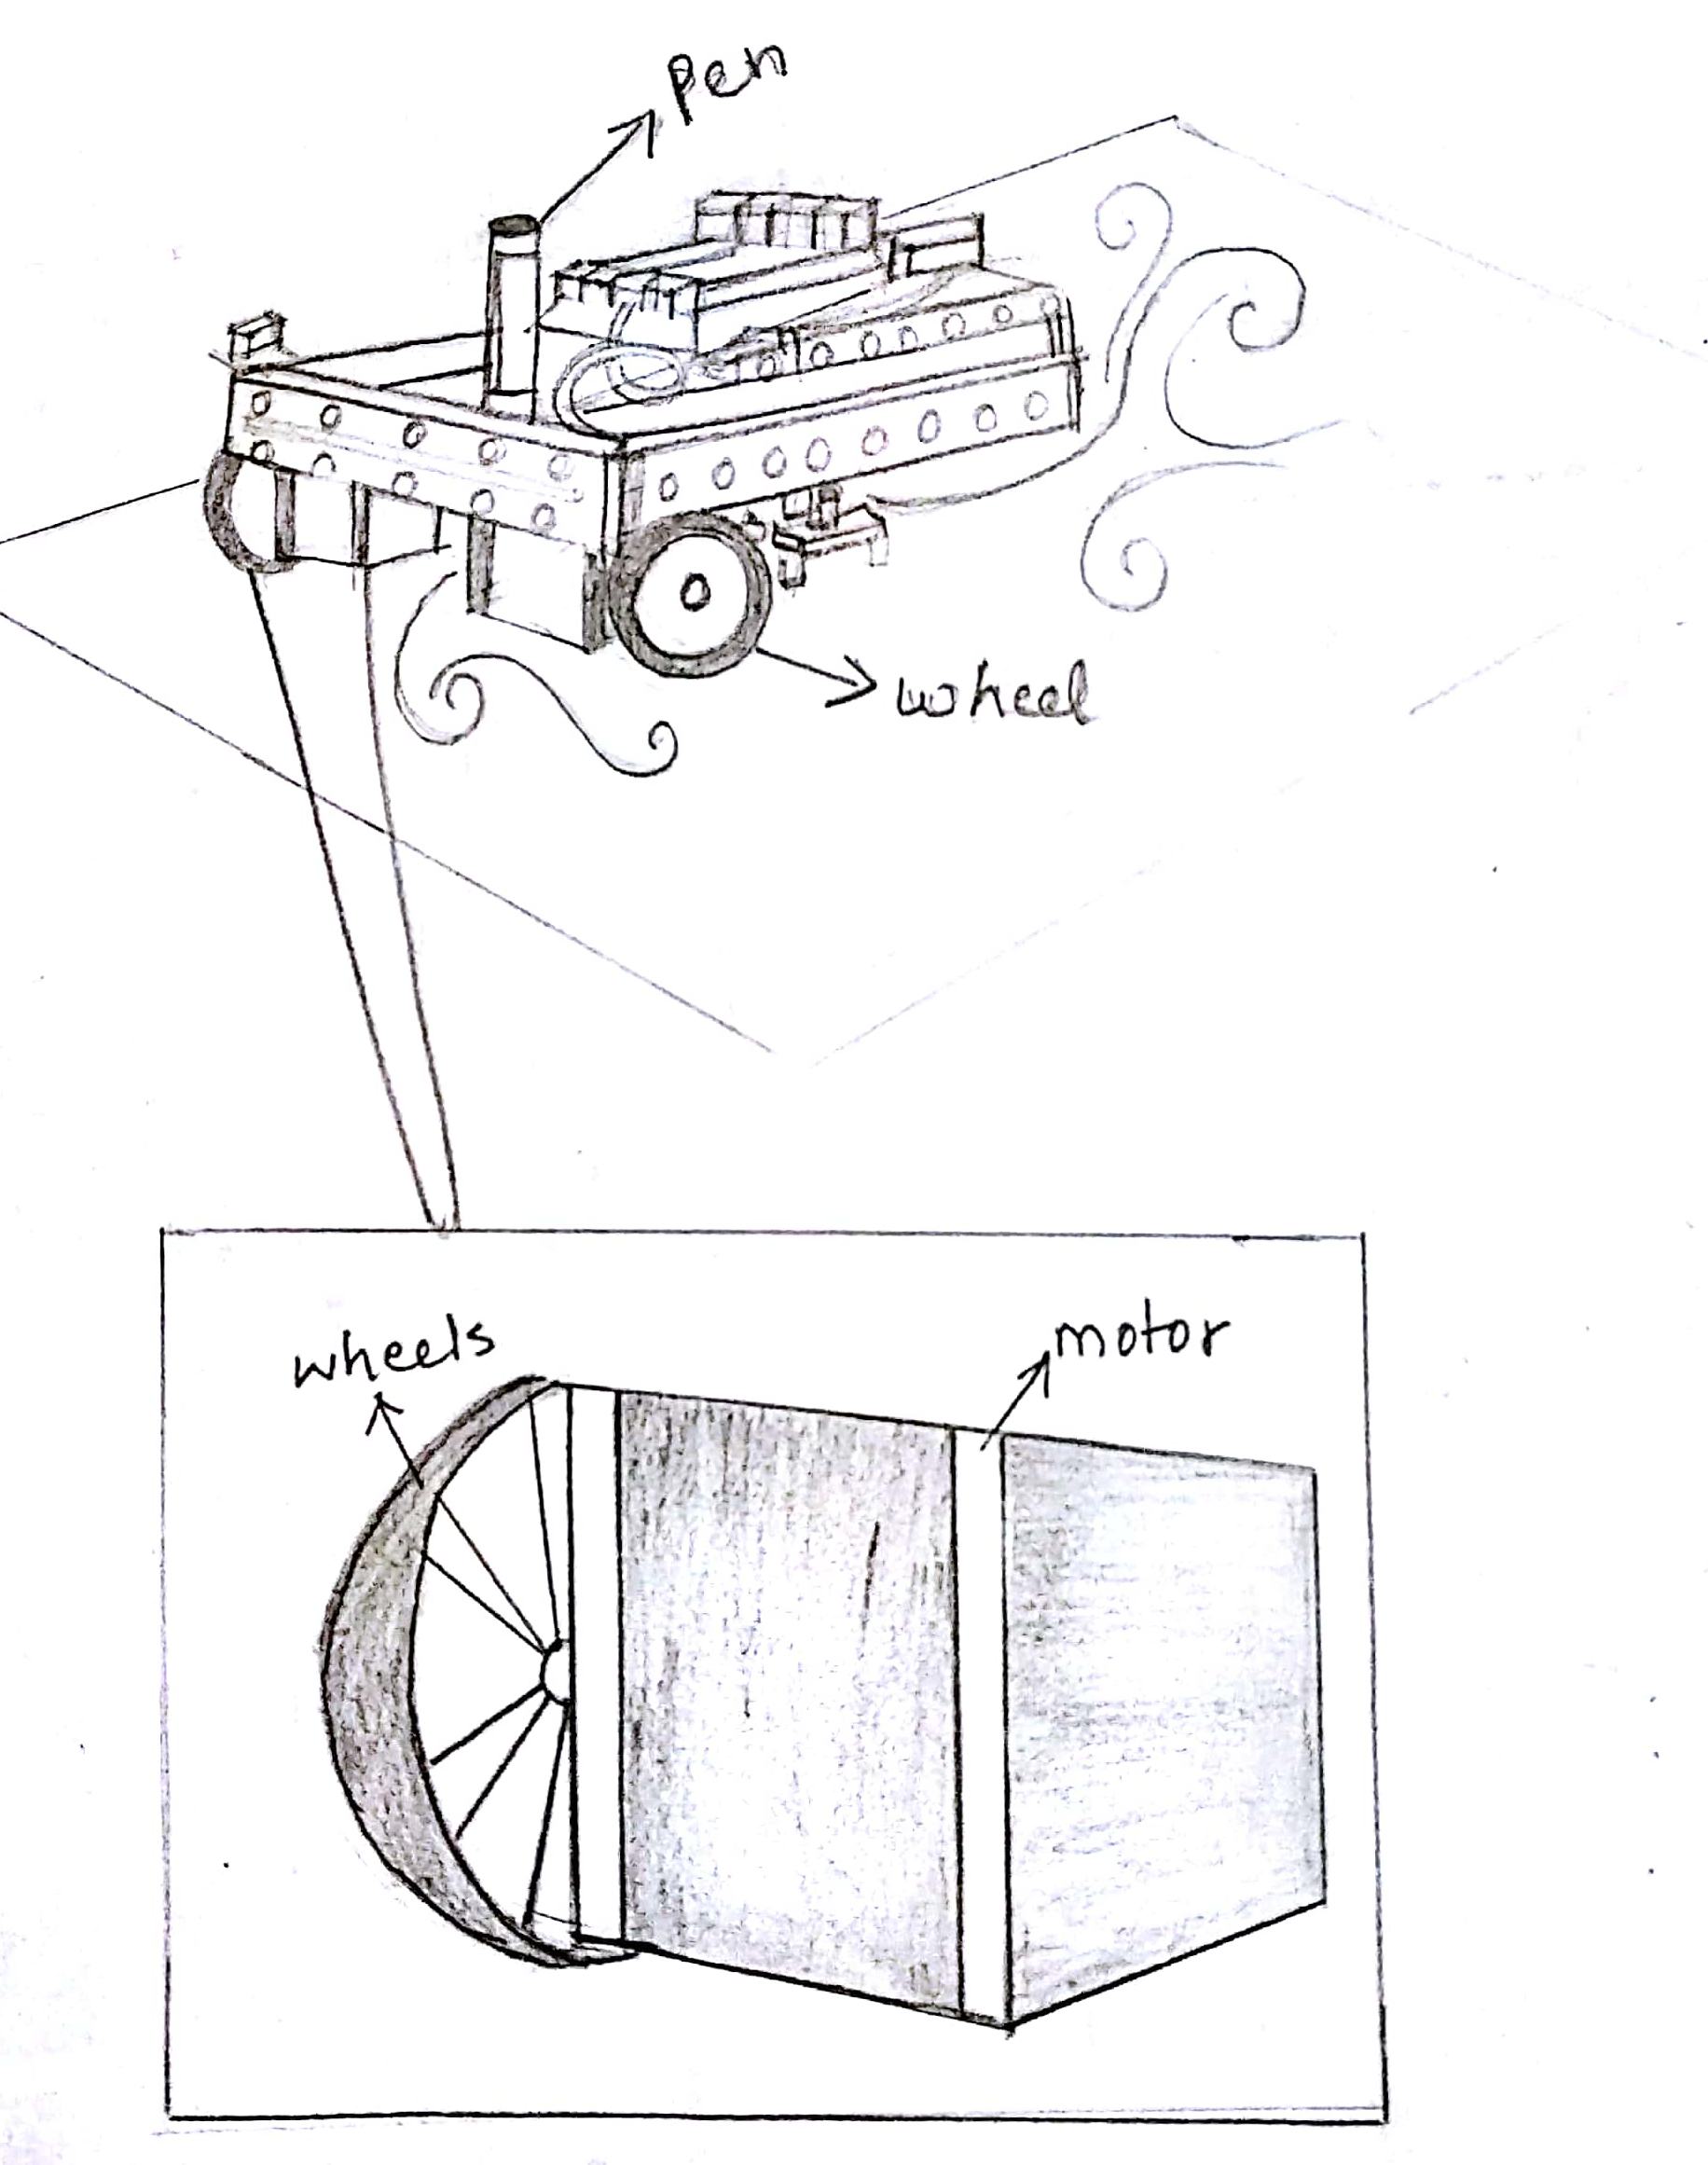 Pen
wheel
wheels
motor